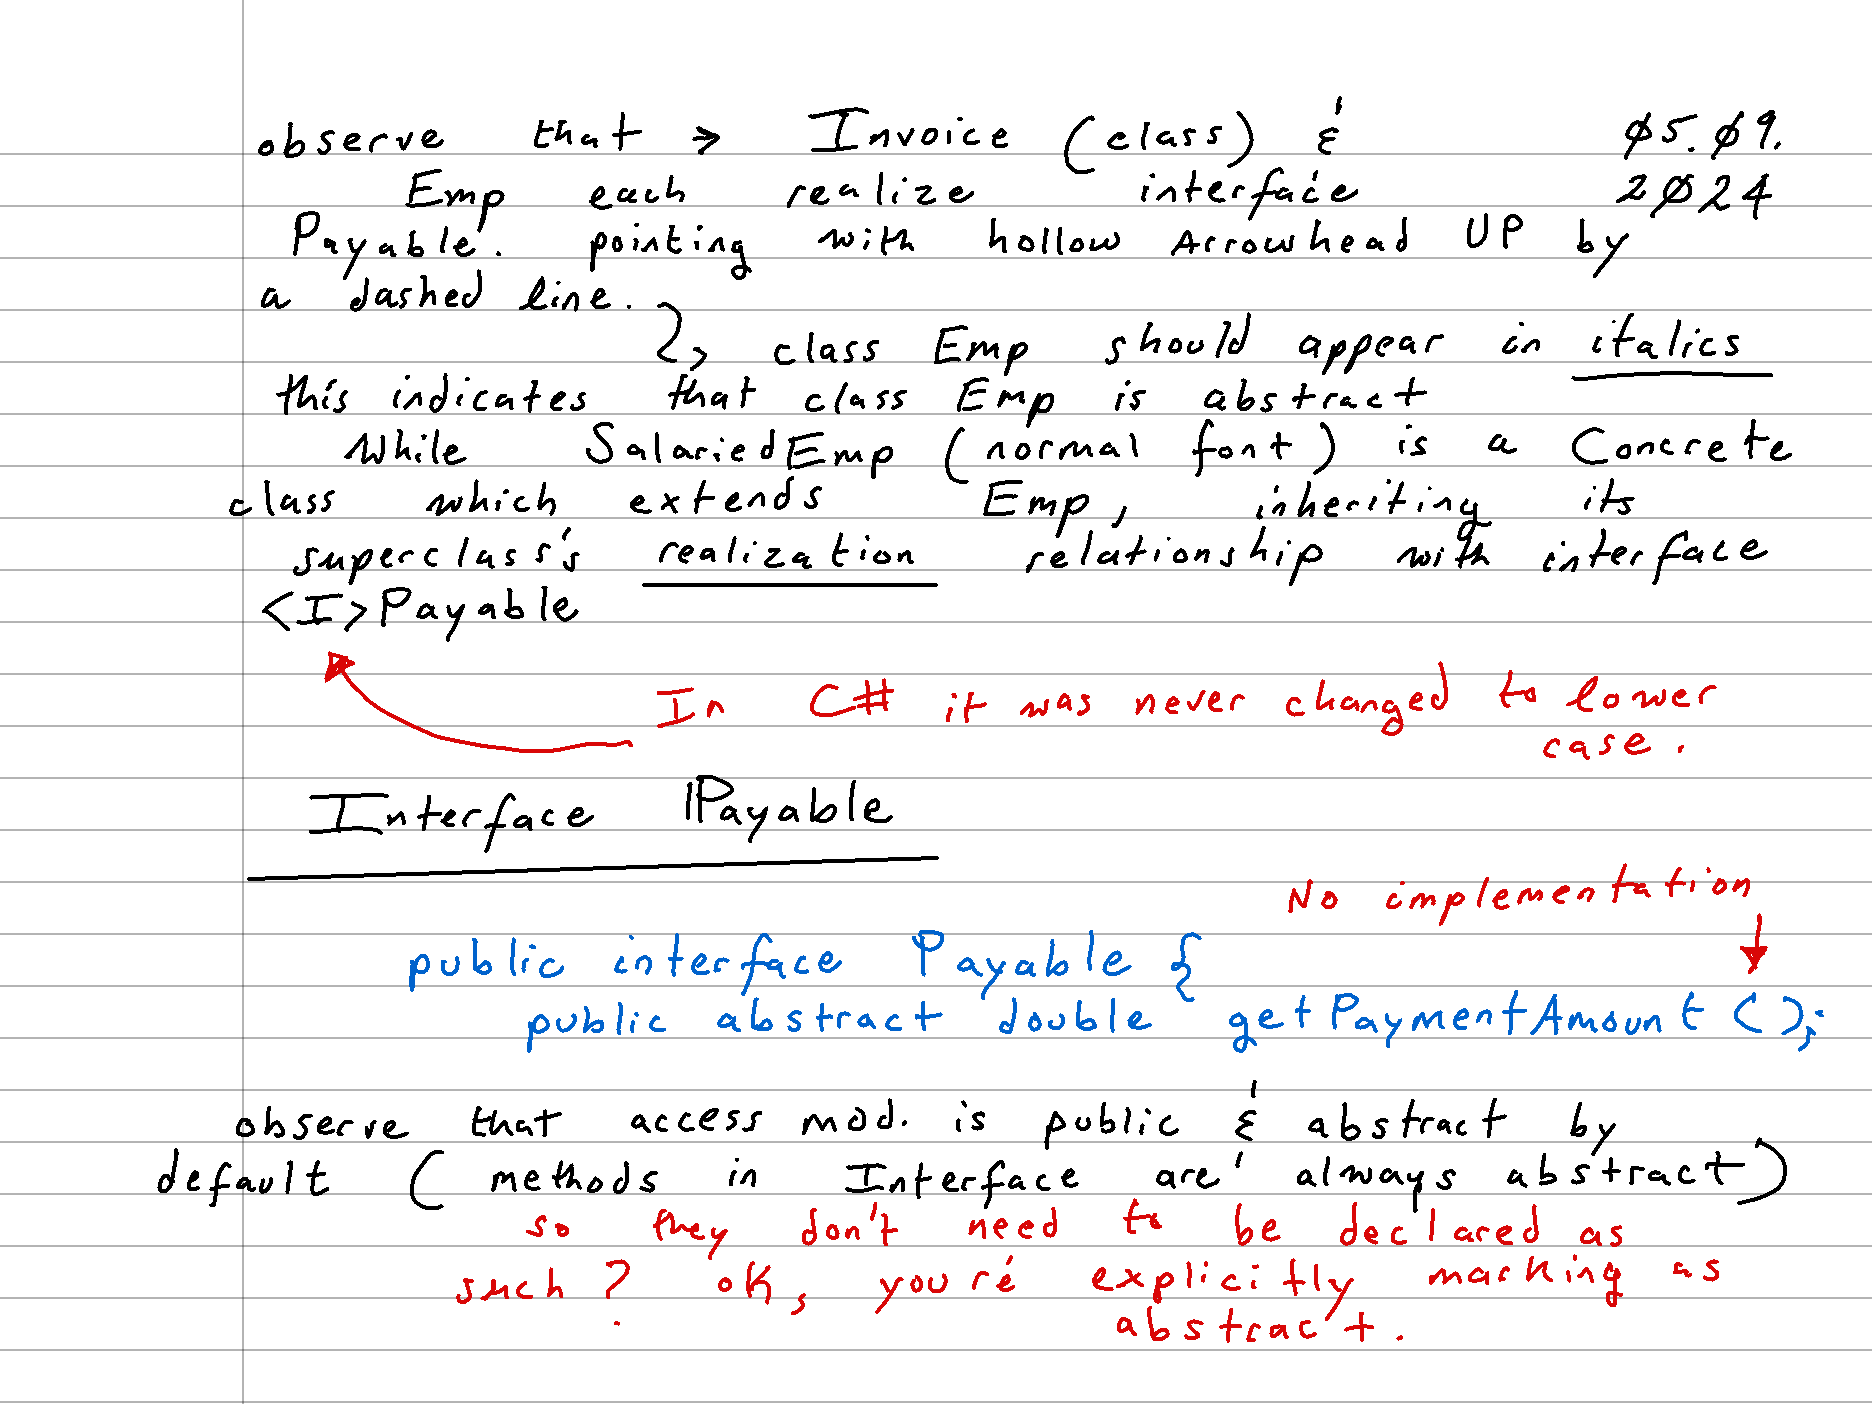 observe that → Invoice (class) & ø5.ø9.
Emp each realize interface 2ø24
Payable. pointing with hollow Arrowhead UP by
a dashed line.
↳ class Emp should appear in italics
this indicates that class Emp is abstract
While SalariedEmp (normal font) is a Concrete
class which extends Emp, inheriting its
superclass's realization relationship with interface
<I>Payable
In C# it was never changed to lower
case.
Interface IPayable
No implementation
public interface Payable {
public abstract double getPaymentAmount ();
observe that access mod. is public & abstract by
default (methods in Interface are always abstract)
so they don't need to be declared as
such? ok, you're explicitly marking as
abstract.